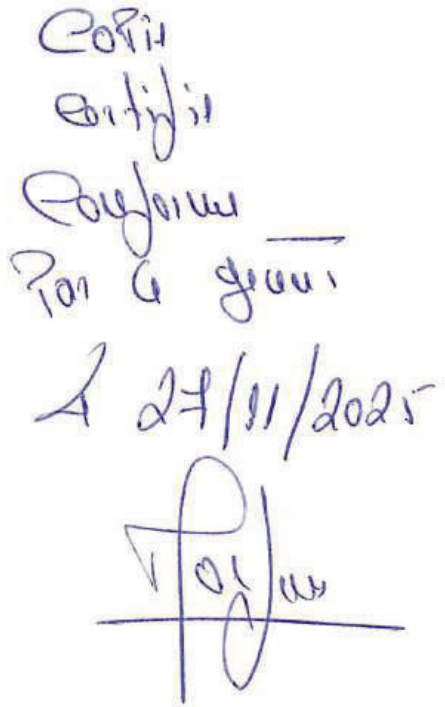 Copie
certifiée
Conforme
Par le gérant
Le 27/11/2025